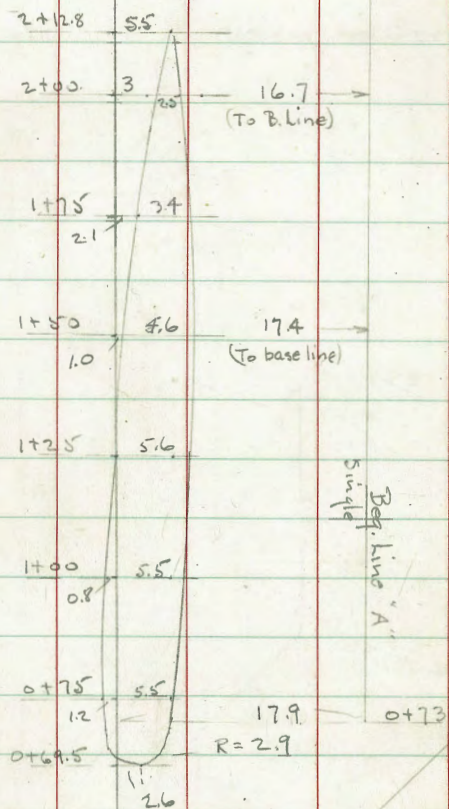 2+12.8 5.5
2+00. 3 16.7
25
(To B. Line)
1+75 3.4
2.1
1+50 4.6 17.4
1.0 (To base line)
1+25 5.6
Beg. Line "A"
Single
1+00 5.5
0.8
0+75 5.5
1.2 17.9 0+73
R = 2.9
0+69.5
2.6